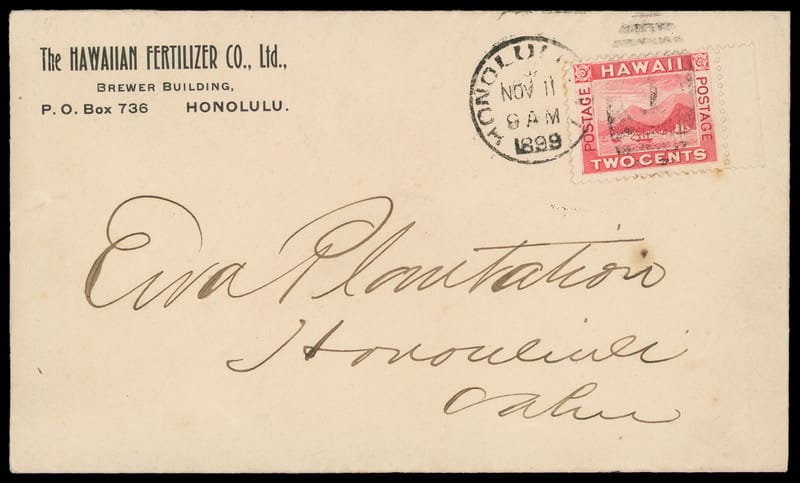 The HAWAIIAN FERTILIZER CO., Ltd.,
BREWER BUILDING,
P. O. Box 736 HONOLULU.
HONOLULU
NOV 11
9 AM
1899
HAWAII
POSTAGE
POSTAGE
TWO CENTS
Ewa Plantation
Honouliuli
Oahu